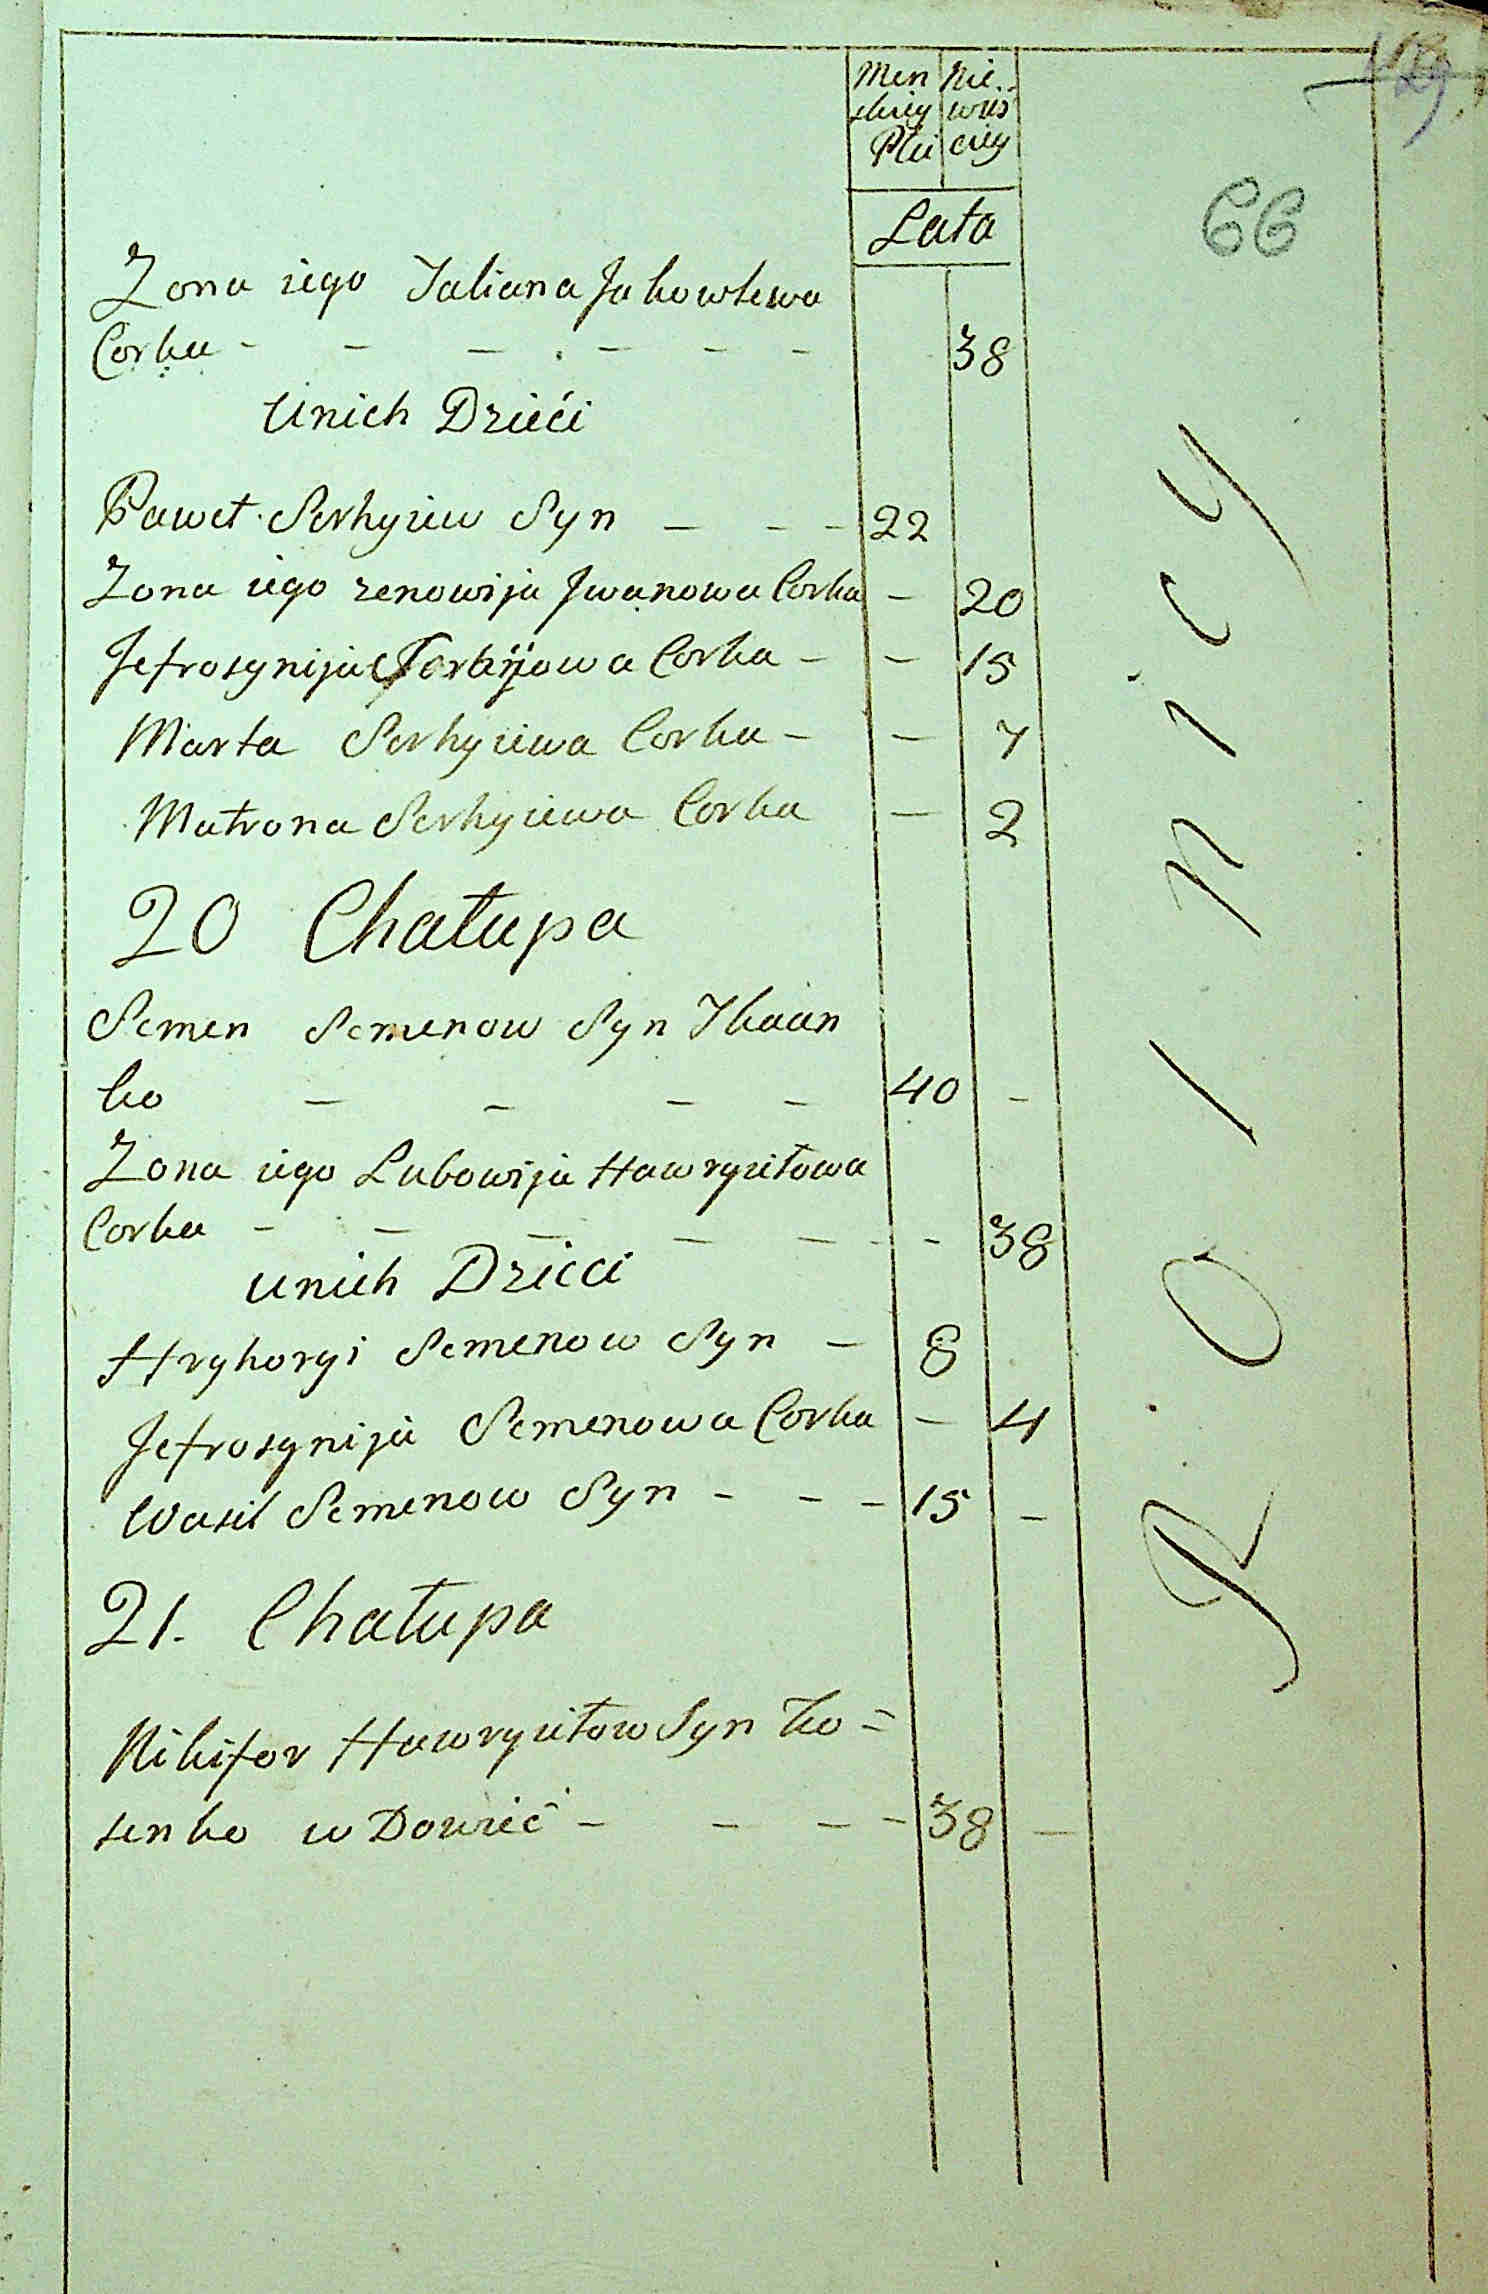 Men Nie
skiey wies
Płci ciey
Lata
66
Zona iego Taliana Jakowlewa
Corka - - - - - - 38
Unich Dzieći
Paweł Serhyiew Syn - - - 22
Zona iego zenowija Jwanowa Corka - 20
Jefrosynija Serhijowa Corka - - 15
Marta Serhyiewa Corka - - 7
Matrona Serhyiewa Corka - 2
20 Chałupa
Semen Semenow Syn
ko - - - - 40 -
Zona iego Lubowija Hawryiłowa
Corka - - - - - - 38
unich Dzieci
Hryhoryi Semenow Syn - 8
Jefrosynija Semenowa Corka - 4
Wasil Semenow Syn - - - 15 -
21. Chałupa
Nikifor Hawryiłow Syn Ko=
senko w Dowieć - - - - 38 -
Rolnicy